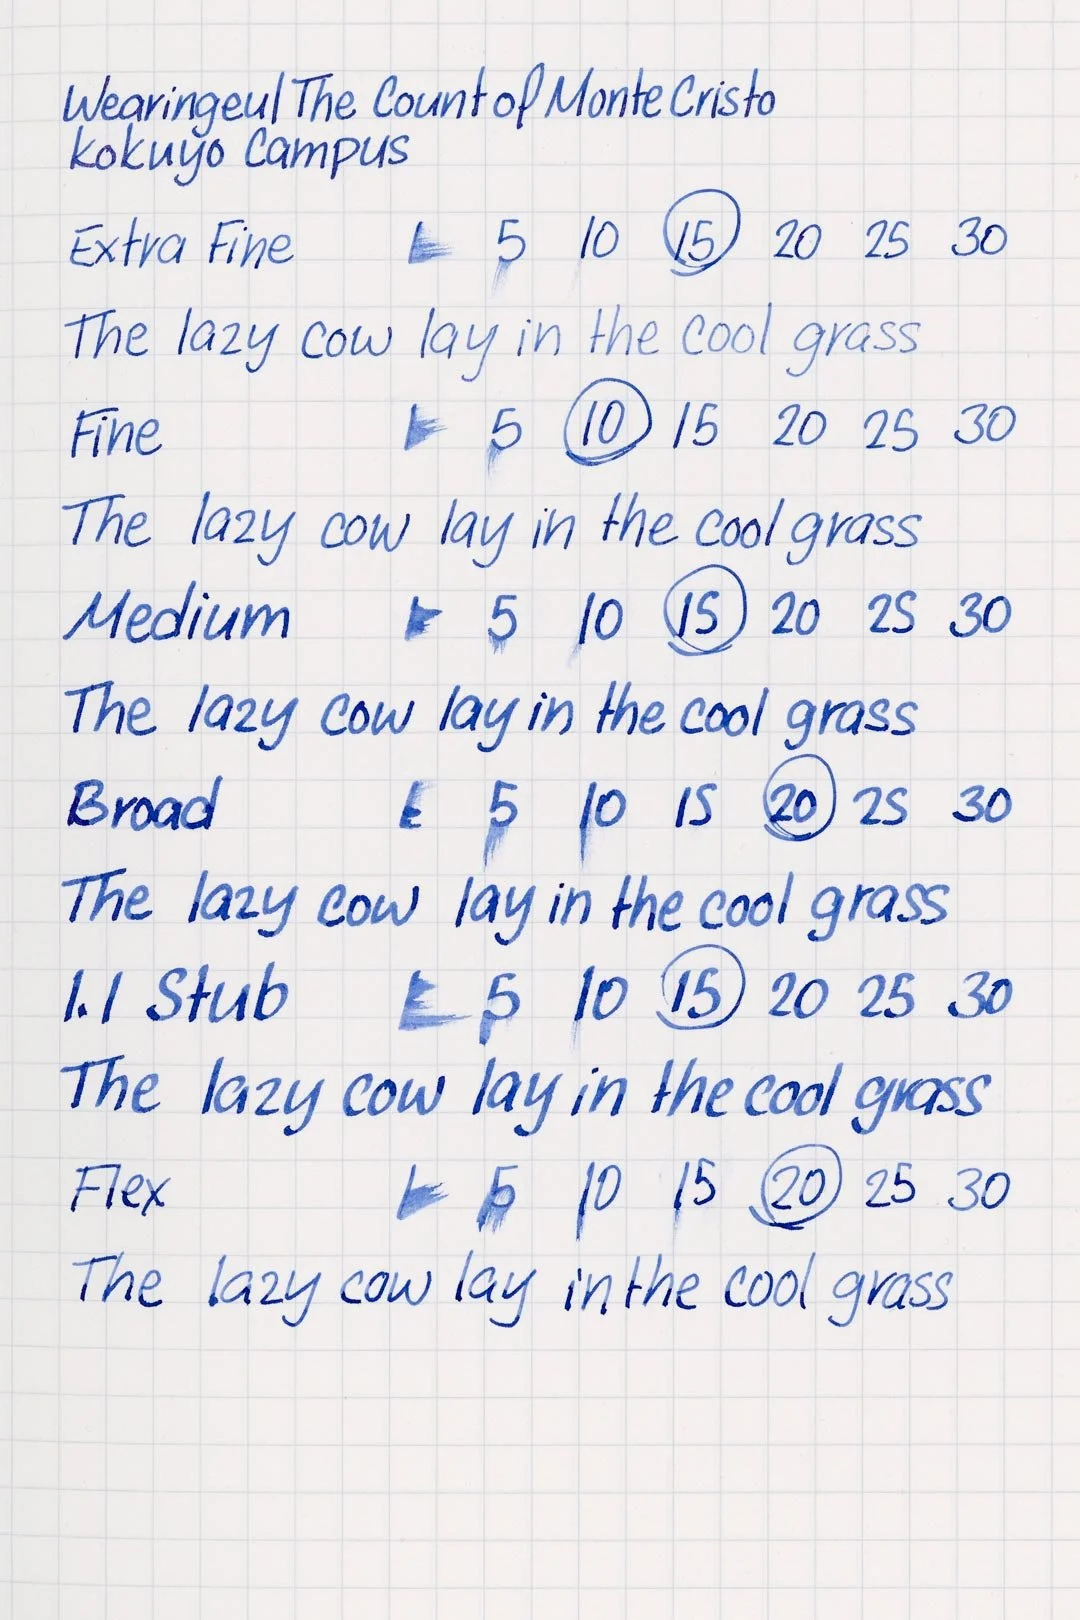 Wearingeul The Count of Monte Cristo
Kokuyo Campus
Extra Fine 5 10 15 20 25 30
The lazy cow lay in the cool grass
Fine 5 10 15 20 25 30
The lazy cow lay in the cool grass
Medium 5 10 15 20 25 30
The lazy cow lay in the cool grass
Broad 5 10 15 20 25 30
The lazy cow lay in the cool grass
1.1 Stub 5 10 15 20 25 30
The lazy cow lay in the cool grass
Flex 5 10 15 20 25 30
The lazy cow lay in the cool grass